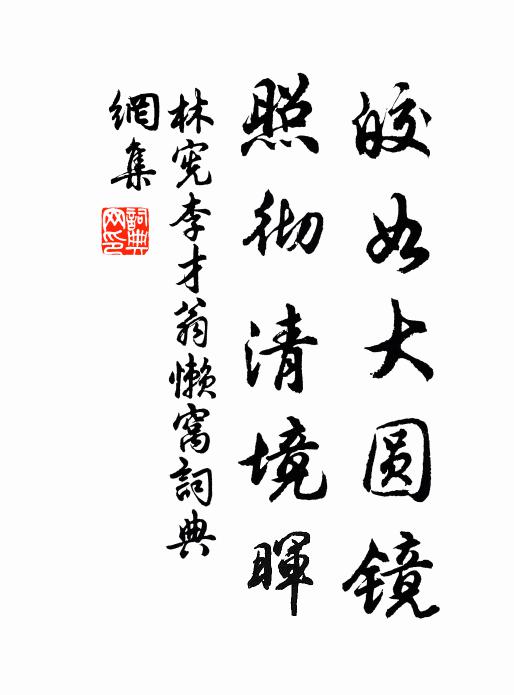 皎如大圆镜
照彻清境暉
林宪李才翁懒窝詞典
網集
詞典
网印